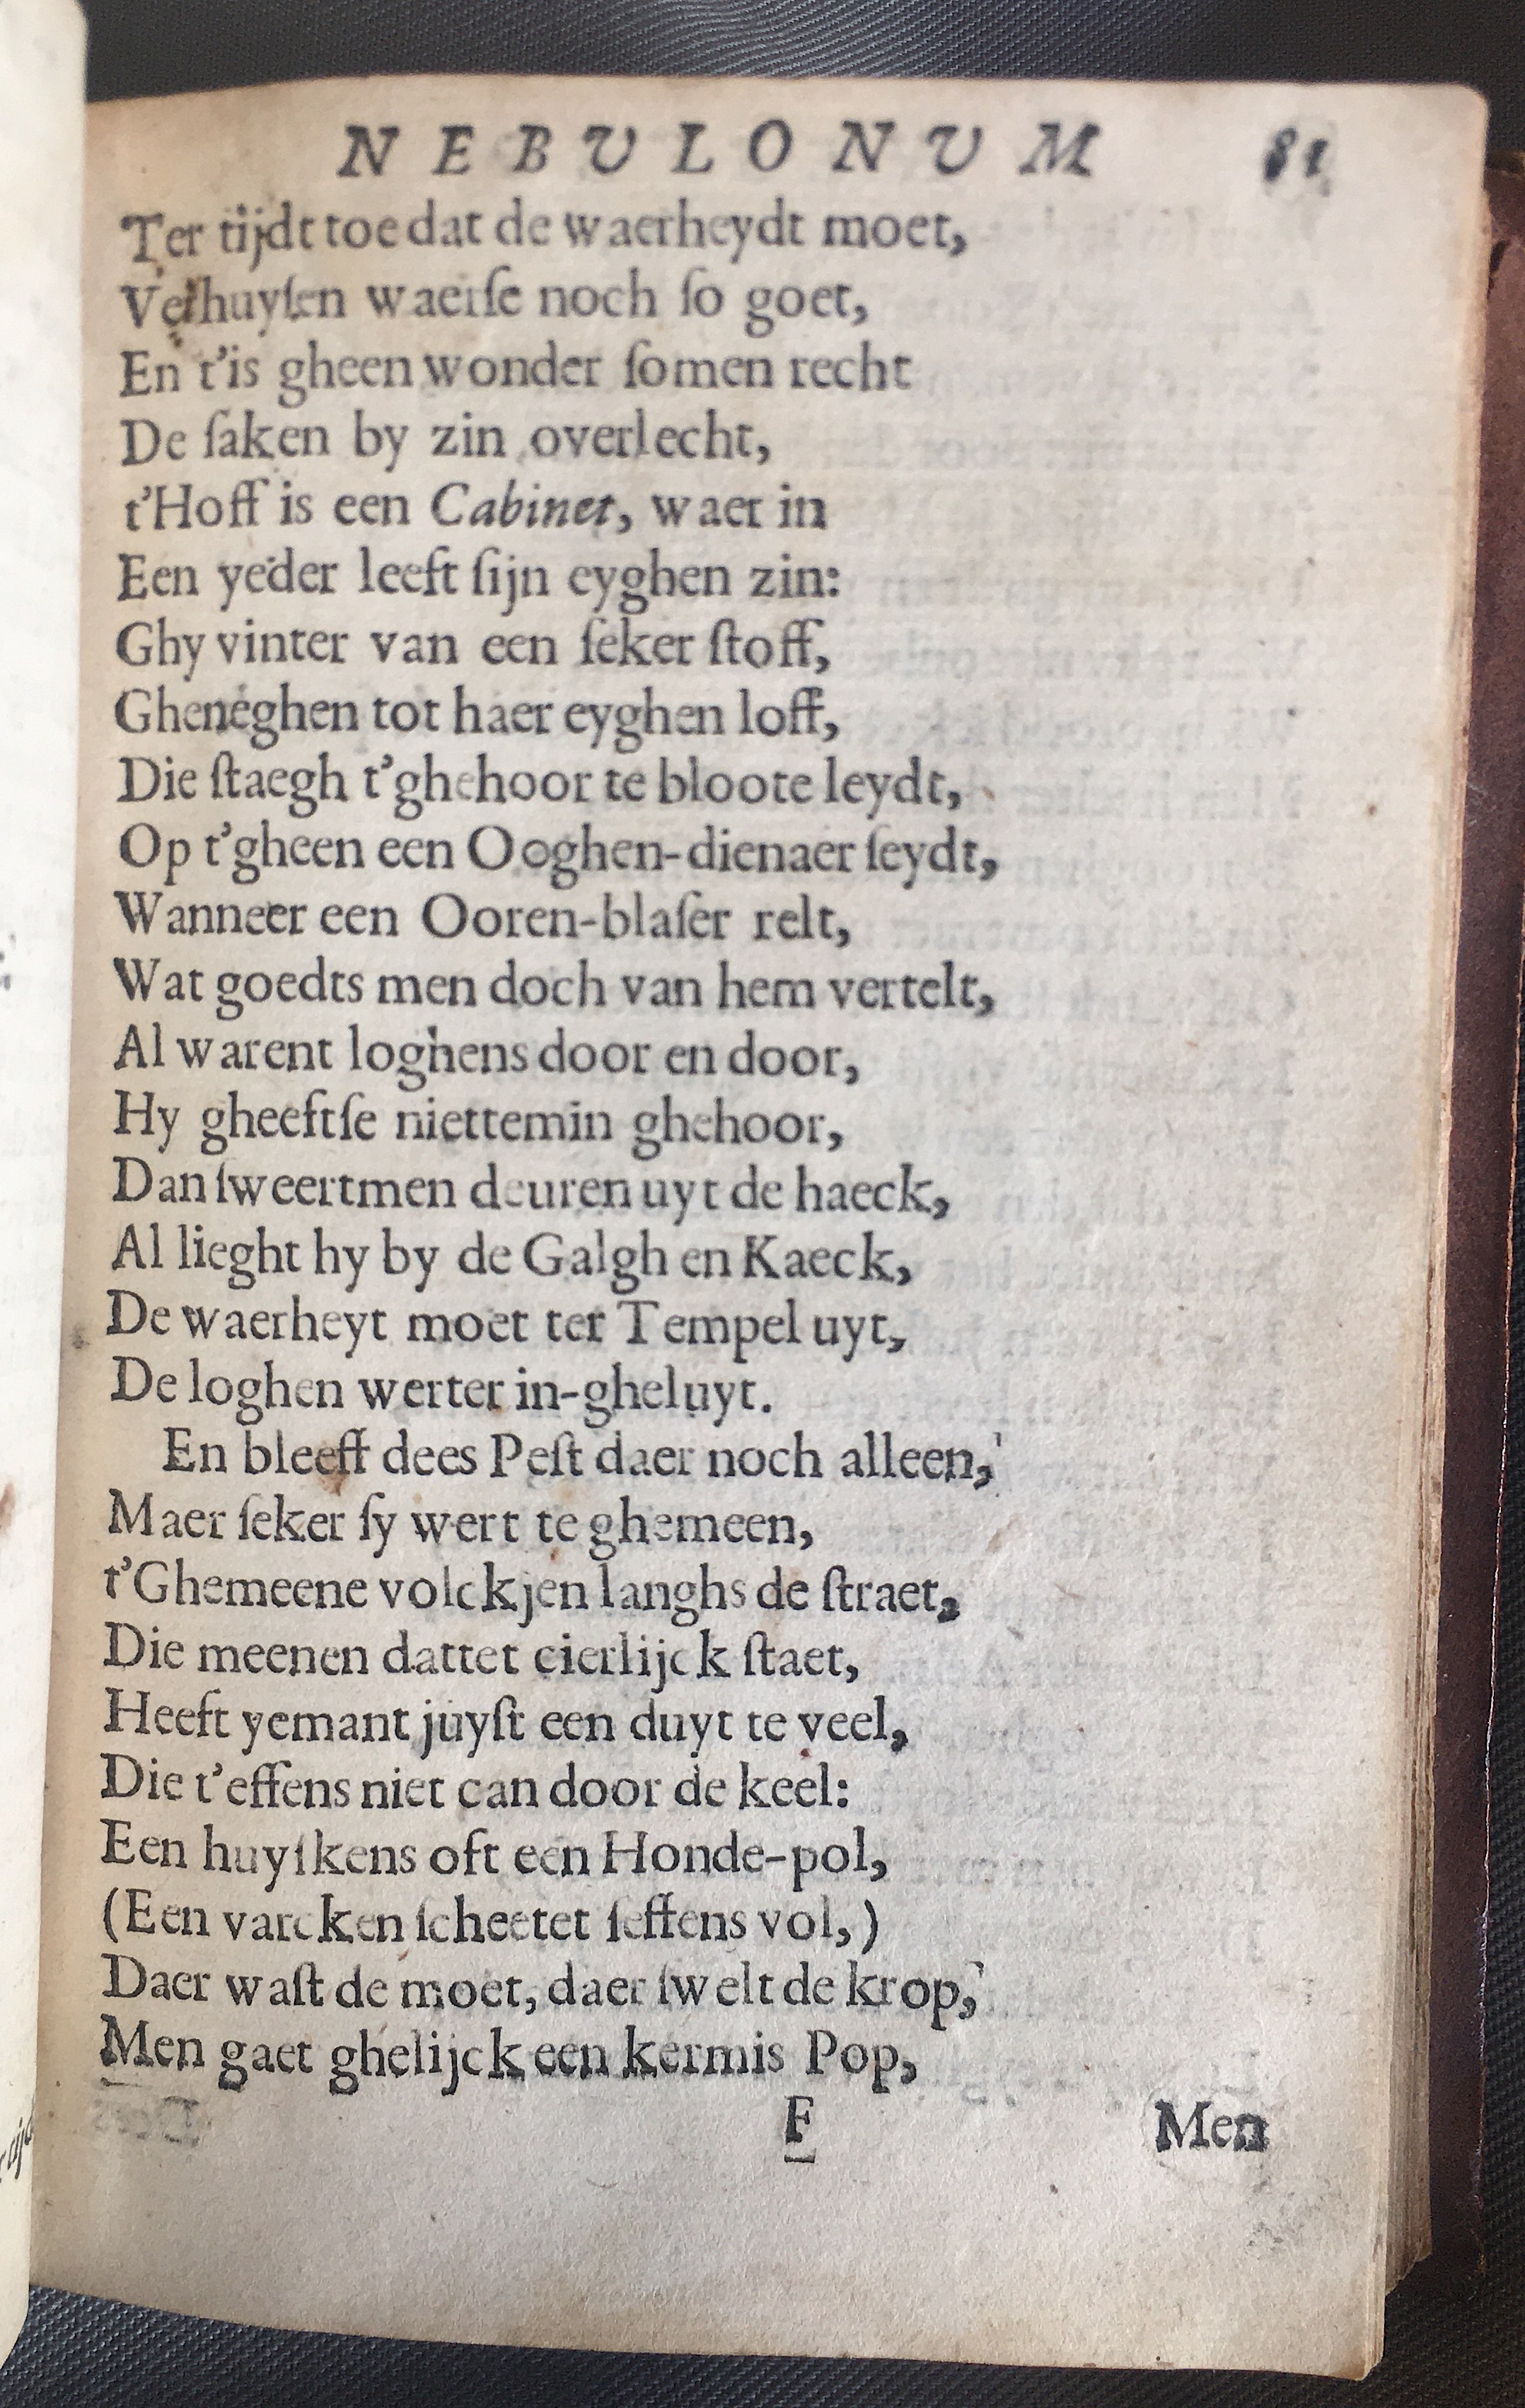 NEBULONUM 81
Ter tijdt toe dat de waerheydt moet,
Verhuyſen waerſe noch ſo goet,
En t'is gheen wonder ſomen recht
De ſaken by zin overlecht,
t'Hoff is een Cabinet, waer in
Een yeder leeft ſijn eyghen zin:
Ghy vinter van een ſeker ſtoff,
Gheneghen tot haer eyghen loff,
Die ſtaegh t'ghehoor te bloote leydt,
Op t'gheen een Ooghen-dienaer ſeydt,
Wanneer een Ooren-blaſer relt,
Wat goedts men doch van hem vertelt,
Al warent loghens door en door,
Hy gheeftſe niettemin ghehoor,
Dan ſweertmen deuren uyt de haeck,
Al lieght hy by de Galgh en Kaeck,
De waerheyt moet ter Tempel uyt,
De loghen werter in-gheluyt.
En bleeff dees Peſt daer noch alleen,
Maer ſeker ſy wert te ghemeen,
t'Ghemeene volckjen langhs de ſtraet,
Die meenen dattet cierlijck ſtaet,
Heeft yemant juyſt een duyt te veel,
Die t'effens niet can door de keel:
Een huyſkens oft een Honde-pol,
(Een varcken ſcheetet ſeffens vol,)
Daer waſt de moet, daer ſwelt de krop,
Men gaet ghelijck een kermis Pop,
F Men